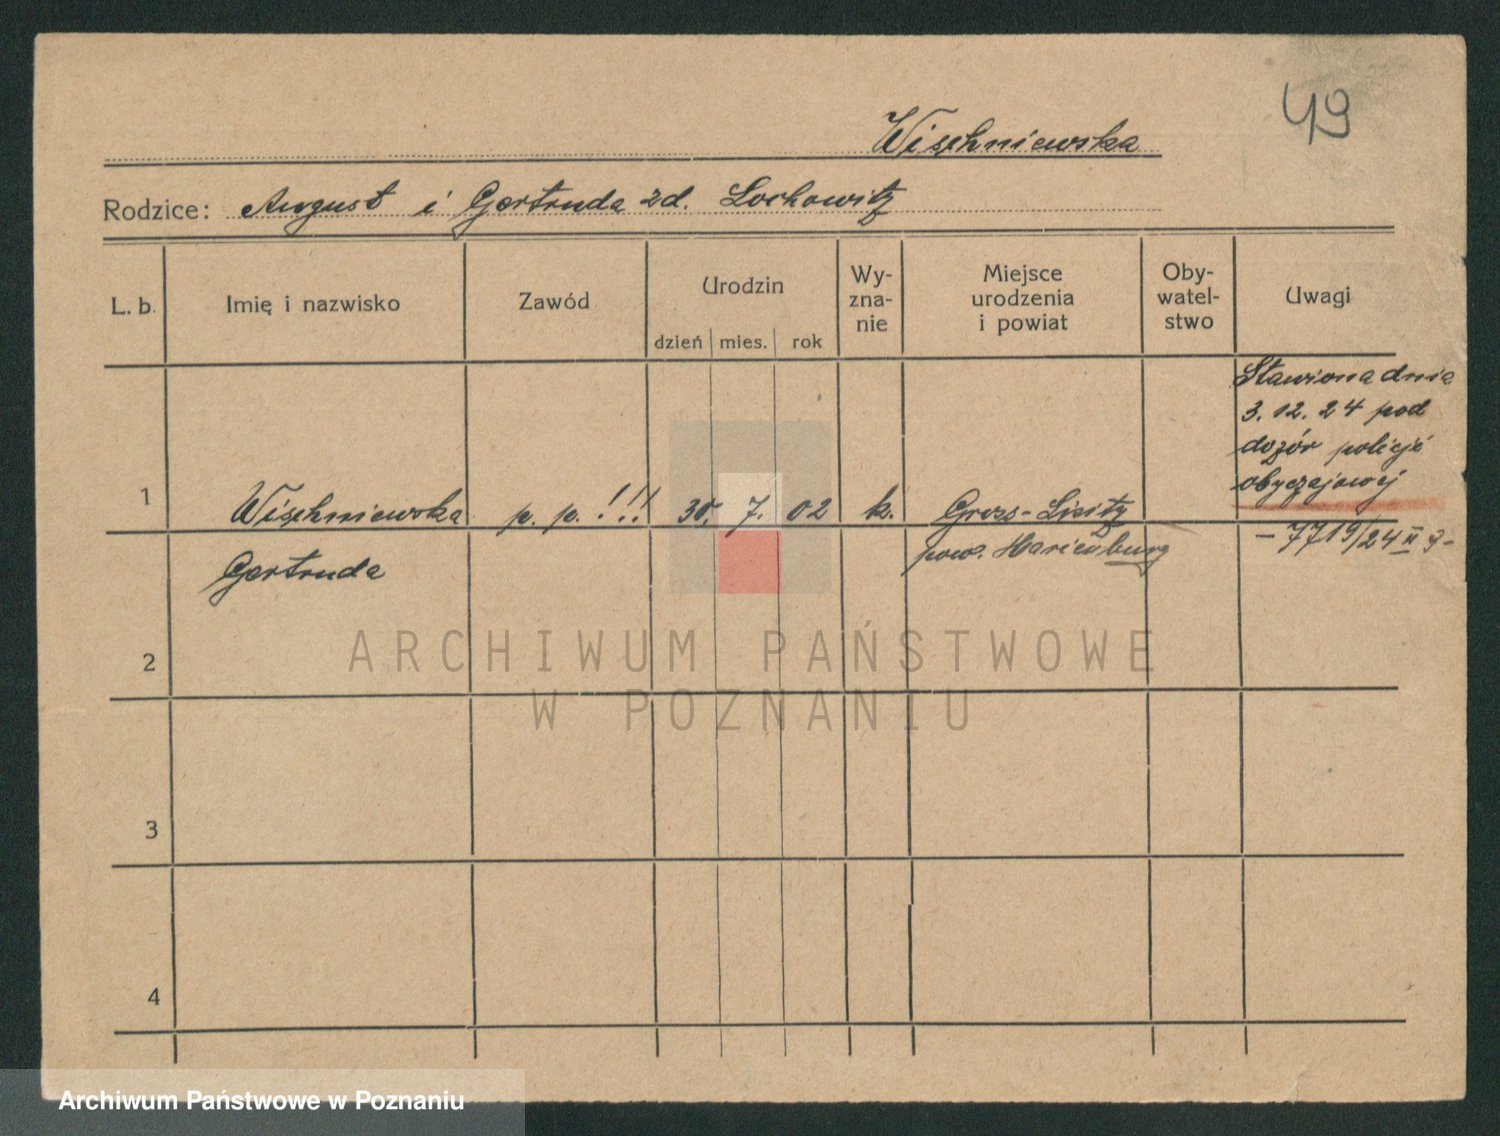 49
Wischniewska
Rodzice: August i Gertruda zd. Lochowitz
L. b.
Imię i nazwisko
Zawód
Urodzin
dzień mies. rok
Wy-
zna-
nie
Miejsce
urodzenia
i powiat
Oby-
watel-
stwo
Uwagi
1
Wischniewska
Gertruda
p. p. !!!
30. 7. 02
k.
Gross-
pow. Marienburg
Stawiona dnia
3. 12. 24 pod
dozór policji
obyczajowej
- 7719/24 II
2
3
4
ARCHIWUM PAŃSTWOWE
W POZNANIU
Archiwum Państwowe w Poznaniu